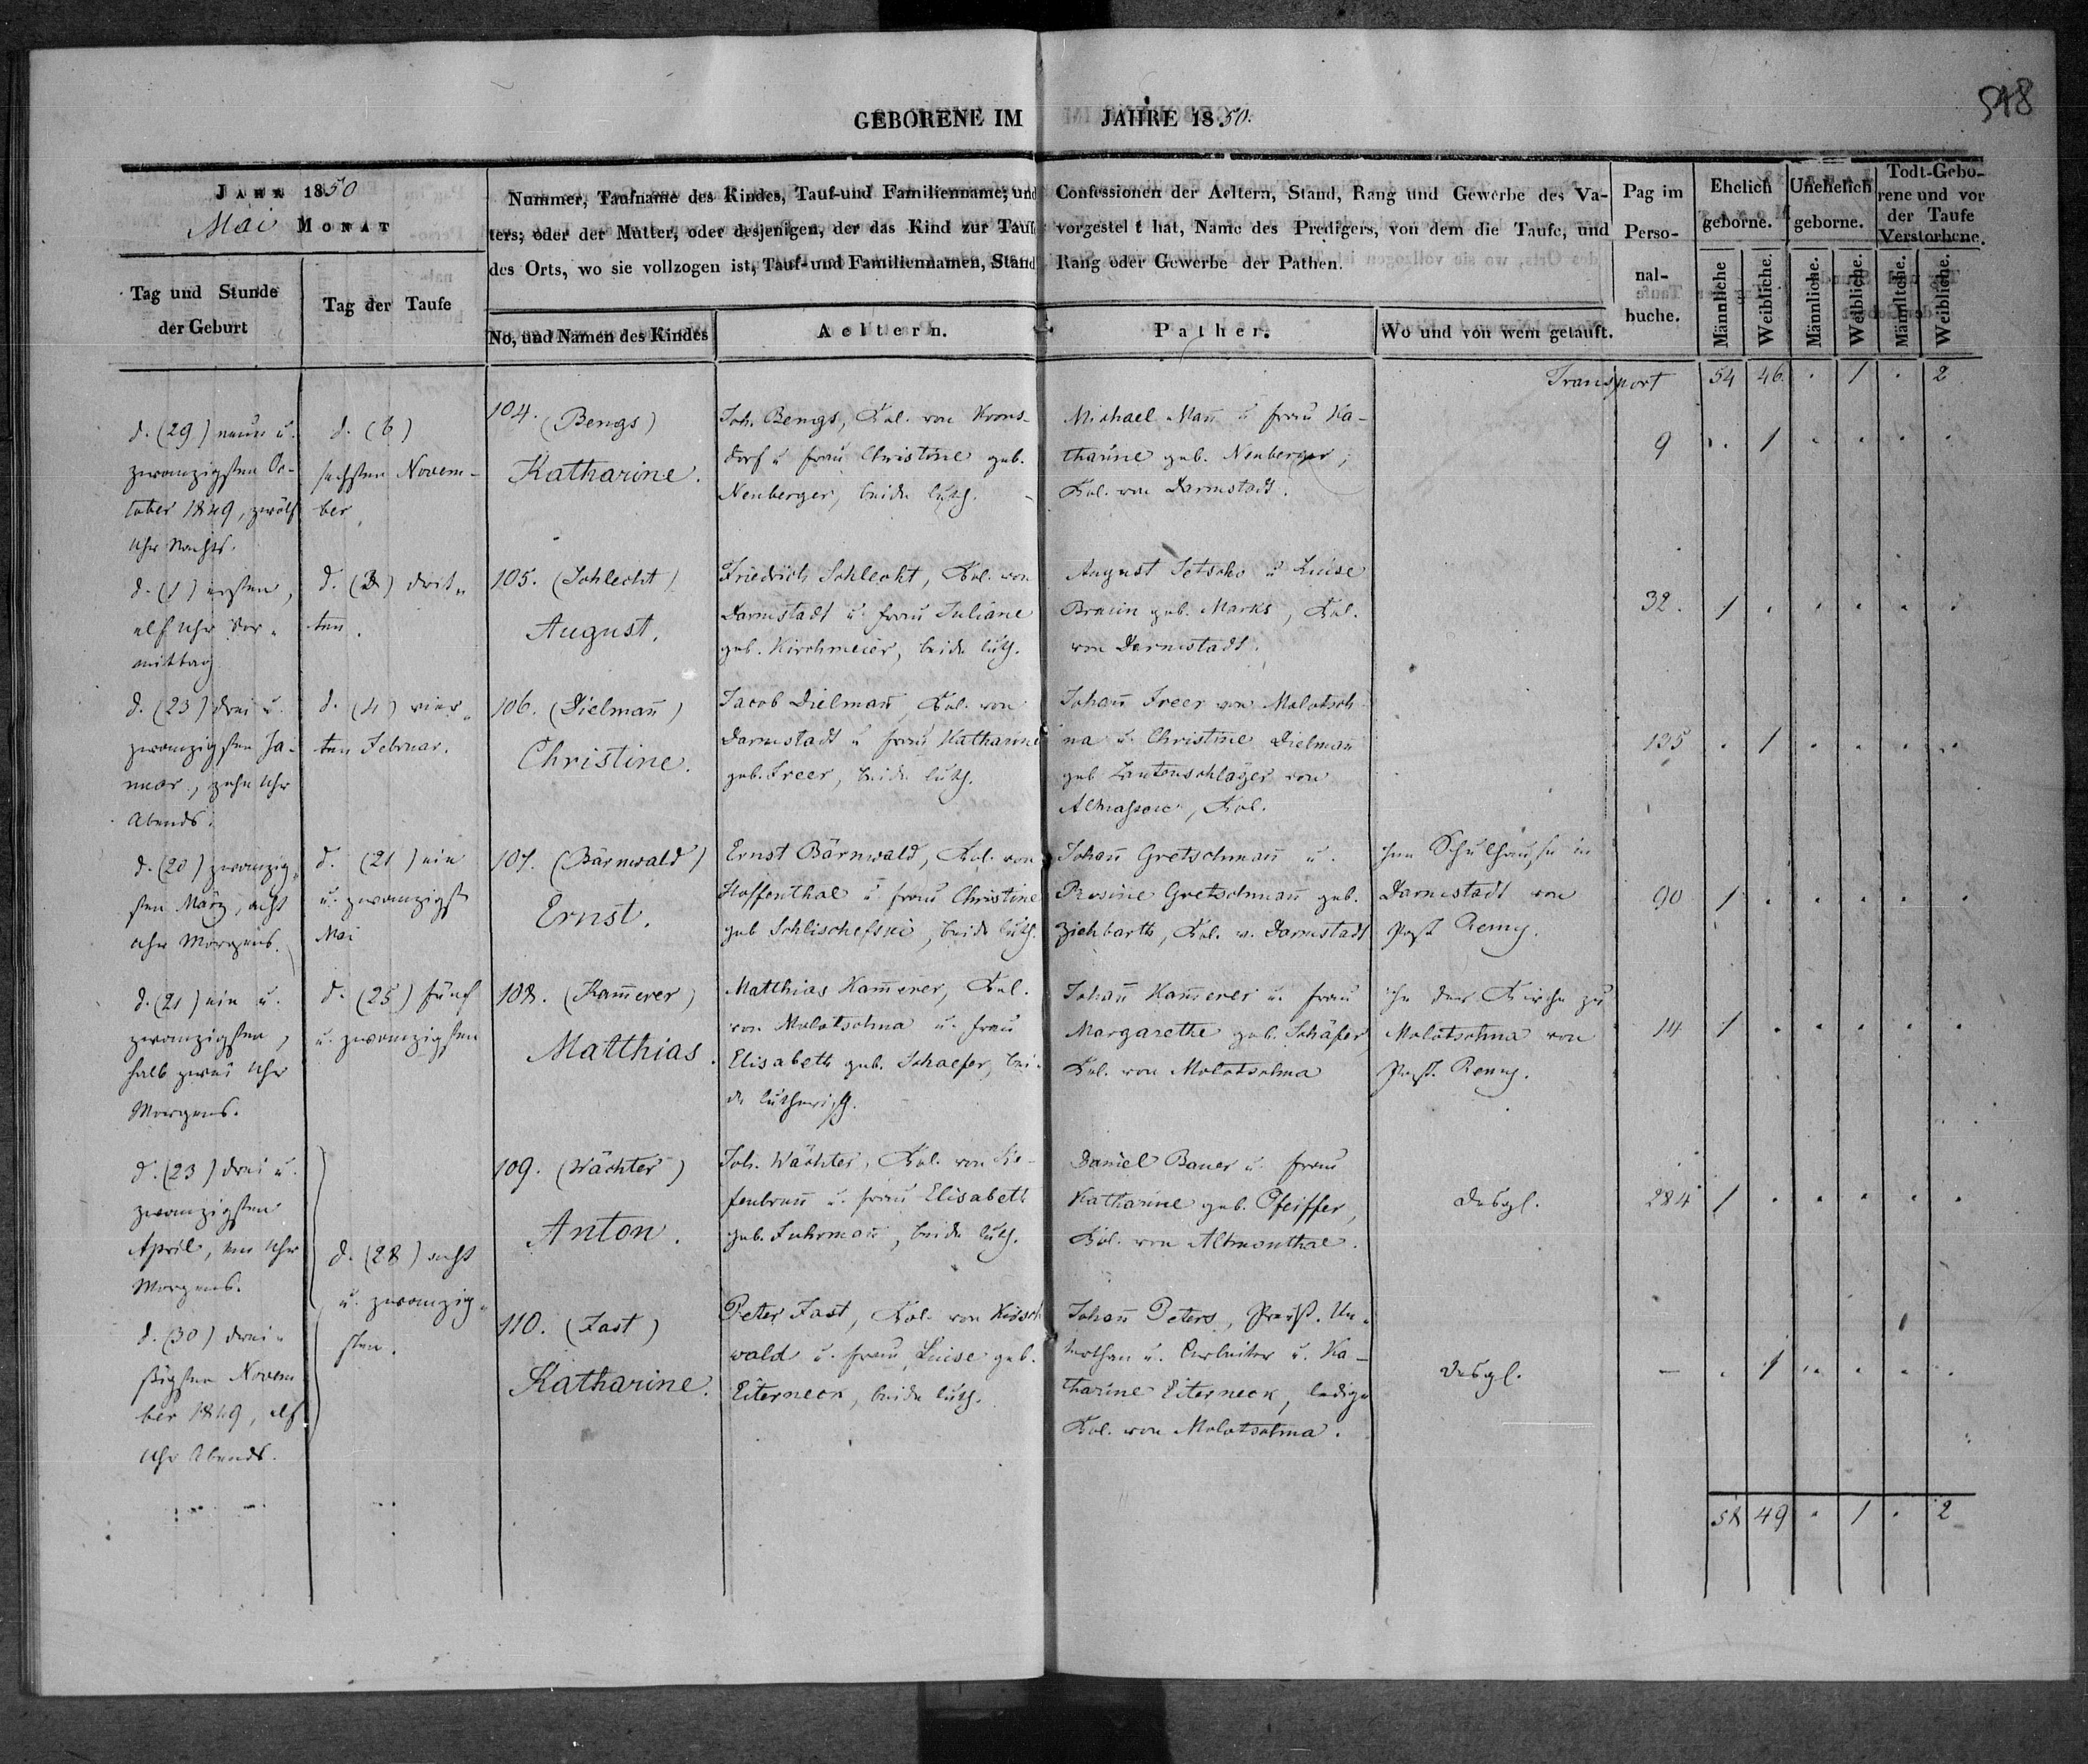 548
GEBORENE IM JAHRE 18.50.
JAHR 1850
Mai MONAT
Tag und Stunde
der Geburt
Tag der Taufe
Nummer, Taufname des Kindes, Tauf-und Familienname; und Confessionen der Aeltern, Stand, Rang und Gewerbe des Va-
ters; oder der Mutter, oder desjenigen, der das Kind zur Taufe vorgestel t hat, Name des Predigers, von dem die Taufe, und
des Orts, wo sie vollzogen ist, Tauf-und Familiennamen, Stand Rang oder Gewerbe der Pathen.
No, und Namen des Kindes
Aeltern.
Pather.
Wo und von wem getauft.
Pag im
Perso-
nal-
buche.
Ehelich
geborne.
Unehelich
geborne.
Todt-Gebo-
rene und vor
der Taufe
Verstorbene.
Männliche
Weibliche.
Männliche.
Weibliche.
Männliche.
Weibliche.
Transport 54 46 . 1 . 2
d. (29) neun u.
zwanzigsten Oc-
tober 1849, zwölf
Uhr Nachts.
d. (6)
sechsten Novem-
ber
104. (Bengs)
Katharine.
Joh. Bengs, Kol. von Krons-
dorf u frau Christine geb.
Neuberger, beide luth.
Michael Mañ u frau Ka-
tharine geb. Neuberger,
Kol. von Darmstadt.
9 . 1 . . . .
d. (1) ersten,
elf Uhr Vor-
mittag
d. (3) drit-
ten.
105. (Schlecht)
August.
Friedrich Schlecht, Kol. von
Darmstadt u. frau Juliane
geb. Kirchmeier, beide luth.
August Jetscho u Luise
Braun geb. Marks, Kol.
von Darmstadt.
32. 1 . . . . .
d. (23) drei u.
zwanzigsten Ja-
nuar, zehn Uhr
Abends.
d. (4) vier-
ten Februar.
106. (Dielmañ)
Christine.
Jacob Dielmañ, Kol. von
Darmstadt u frau Katharine
geb. Freer, beide luth.
Johañ Freer von Molotsch-
na u. Christine Dielmañ
geb Lautenschlager von
Altnassau, Kol.
135 . 1 . . . .
d. (20) zwanzig-
sten März, acht
Uhr Morgens.
d. (21) ein
u. zwanzigst
Mai
107. (Bärnwald)
Ernst.
Ernst Bärnwald, Kol. von
Hoffenthal u frau Christine
geb Schlischefski, beide luth.
Johañ Gretschmañ u.
Rosine Gretschmañ geb.
Ziehbarth, Kol. v. Darmstadt
Im Schulhause in
Darmstadt von
Past Remy.
90 1 . . . . .
d. (21) ein u.
zwanzigsten,
halb zwei Uhr
Morgens.
d. (25) fünf
u. zwanzigsten
108. (Kam̄erer)
Matthias.
Matthias Kam̄erer, Kol.
von Molotschna u. frau
Elisabeth geb. Schaefer, bei-
de lutherisch.
Johañ Kam̄erer u. frau
Margarethe geb. Schäfer,
Kol. von Molotschna
In der Kirche zu
Molotschna von
Past. Remy.
14 1 . . . . .
d. (23) drei u.
zwanzigsten
April, ein Uhr
Morgens.
d. (28) acht
u. zwanzig-
sten.
109. (Wächter)
Anton.
Joh. Wächter, Kol. von Tie-
fenbruñ u. frau Elisabeth
geb. Fuhrmañ, beide luth.
Daniel Bauer u. frau
Katharine geb. Pfeiffer,
Kol. von Altmonthal.
desgl.
284 1 . . . . .
d. (30) drei-
ßigsten Novem
ber 1849, elf
Uhr Abends.
110. (Fast)
Katharine.
Peter Fast, Kol. von Kirsch
wald u. frau Luise geb.
Eiterneck, beide luth.
Johañ Peters, Preuß. Un-
terthan u. Arbeiter u. Ka-
tharine Eiterneck, ledige
Kol. von Molotschna.
desgl.
– . 1 . . . .
58 49 . 1 . 2